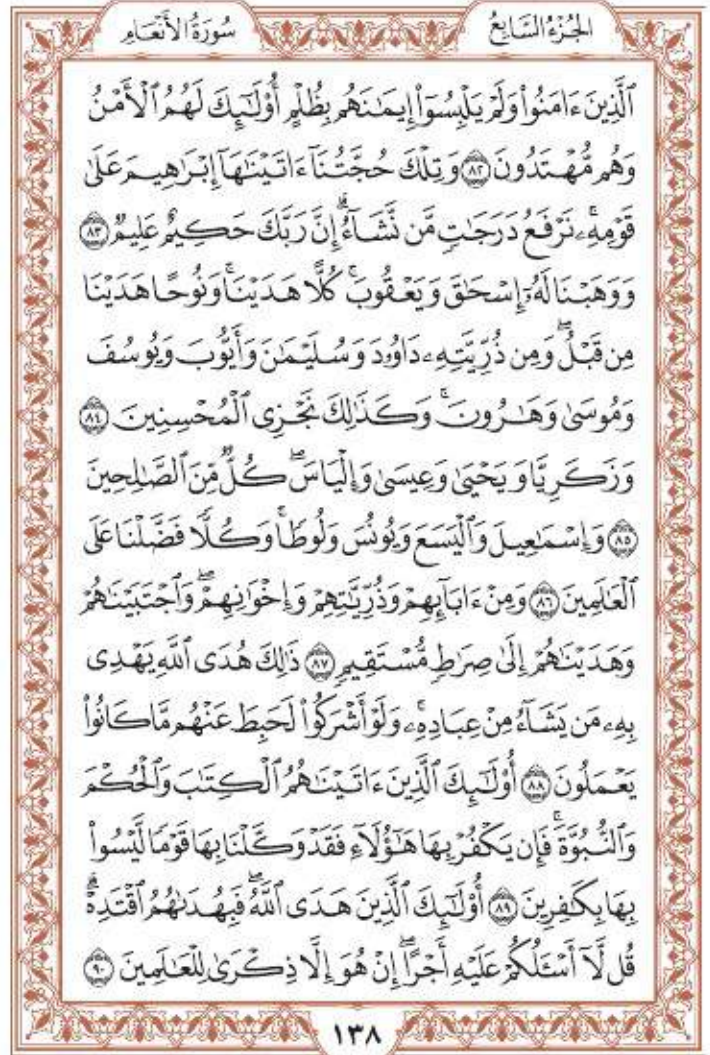 الجُزْءُ السَّابِعُ سُورَةُ الأَنْعَامِ
ٱلَّذِينَ ءَامَنُوا۟ وَلَمْ يَلْبِسُوٓا۟ إِيمَٰنَهُم بِظُلْمٍ أُو۟لَٰٓئِكَ لَهُمُ ٱلْأَمْنُ
وَهُم مُّهْتَدُونَ ٨٢ وَتِلْكَ حُجَّتُنَآ ءَاتَيْنَٰهَآ إِبْرَٰهِيمَ عَلَىٰ
قَوْمِهِۦۚ نَرْفَعُ دَرَجَٰتٍ مَّن نَّشَآءُۗ إِنَّ رَبَّكَ حَكِيمٌ عَلِيمٌ ٨٣
وَوَهَبْنَا لَهُۥٓ إِسْحَٰقَ وَيَعْقُوبَۚ كُلًّا هَدَيْنَاۚ وَنُوحًا هَدَيْنَا
مِن قَبْلُۖ وَمِن ذُرِّيَّتِهِۦ دَاوُۥدَ وَسُلَيْمَٰنَ وَأَيُّوبَ وَيُوسُفَ
وَمُوسَىٰ وَهَٰرُونَۚ وَكَذَٰلِكَ نَجْزِى ٱلْمُحْسِنِينَ ٨٤
وَزَكَرِيَّا وَيَحْيَىٰ وَعِيسَىٰ وَإِلْيَاسَۖ كُلٌّ مِّنَ ٱلصَّٰلِحِينَ
٨٥ وَإِسْمَٰعِيلَ وَٱلْيَسَعَ وَيُونُسَ وَلُوطًاۚ وَكُلًّا فَضَّلْنَا عَلَى
ٱلْعَٰلَمِينَ ٨٦ وَمِنْ ءَابَآئِهِمْ وَذُرِّيَّٰتِهِمْ وَإِخْوَٰنِهِمْۖ وَٱجْتَبَيْنَٰهُمْ
وَهَدَيْنَٰهُمْ إِلَىٰ صِرَٰطٍ مُّسْتَقِيمٍ ٨٧ ذَٰلِكَ هُدَى ٱللَّهِ يَهْدِى
بِهِۦ مَن يَشَآءُ مِنْ عِبَادِهِۦۚ وَلَوْ أَشْرَكُوا۟ لَحَبِطَ عَنْهُم مَّا كَانُوا۟
يَعْمَلُونَ ٨٨ أُو۟لَٰٓئِكَ ٱلَّذِينَ ءَاتَيْنَٰهُمُ ٱلْكِتَٰبَ وَٱلْحُكْمَ
وَٱلنُّبُوَّةَۚ فَإِن يَكْفُرْ بِهَا هَٰٓؤُلَآءِ فَقَدْ وَكَّلْنَا بِهَا قَوْمًا لَّيْسُوا۟
بِهَا بِكَٰفِرِينَ ٨٩ أُو۟لَٰٓئِكَ ٱلَّذِينَ هَدَى ٱللَّهُۖ فَبِهُدَىٰهُمُ ٱقْتَدِهْۗ
قُل لَّآ أَسْـَٔلُكُمْ عَلَيْهِ أَجْرًاۖ إِنْ هُوَ إِلَّا ذِكْرَىٰ لِلْعَٰلَمِينَ ٩٠
١٣٨